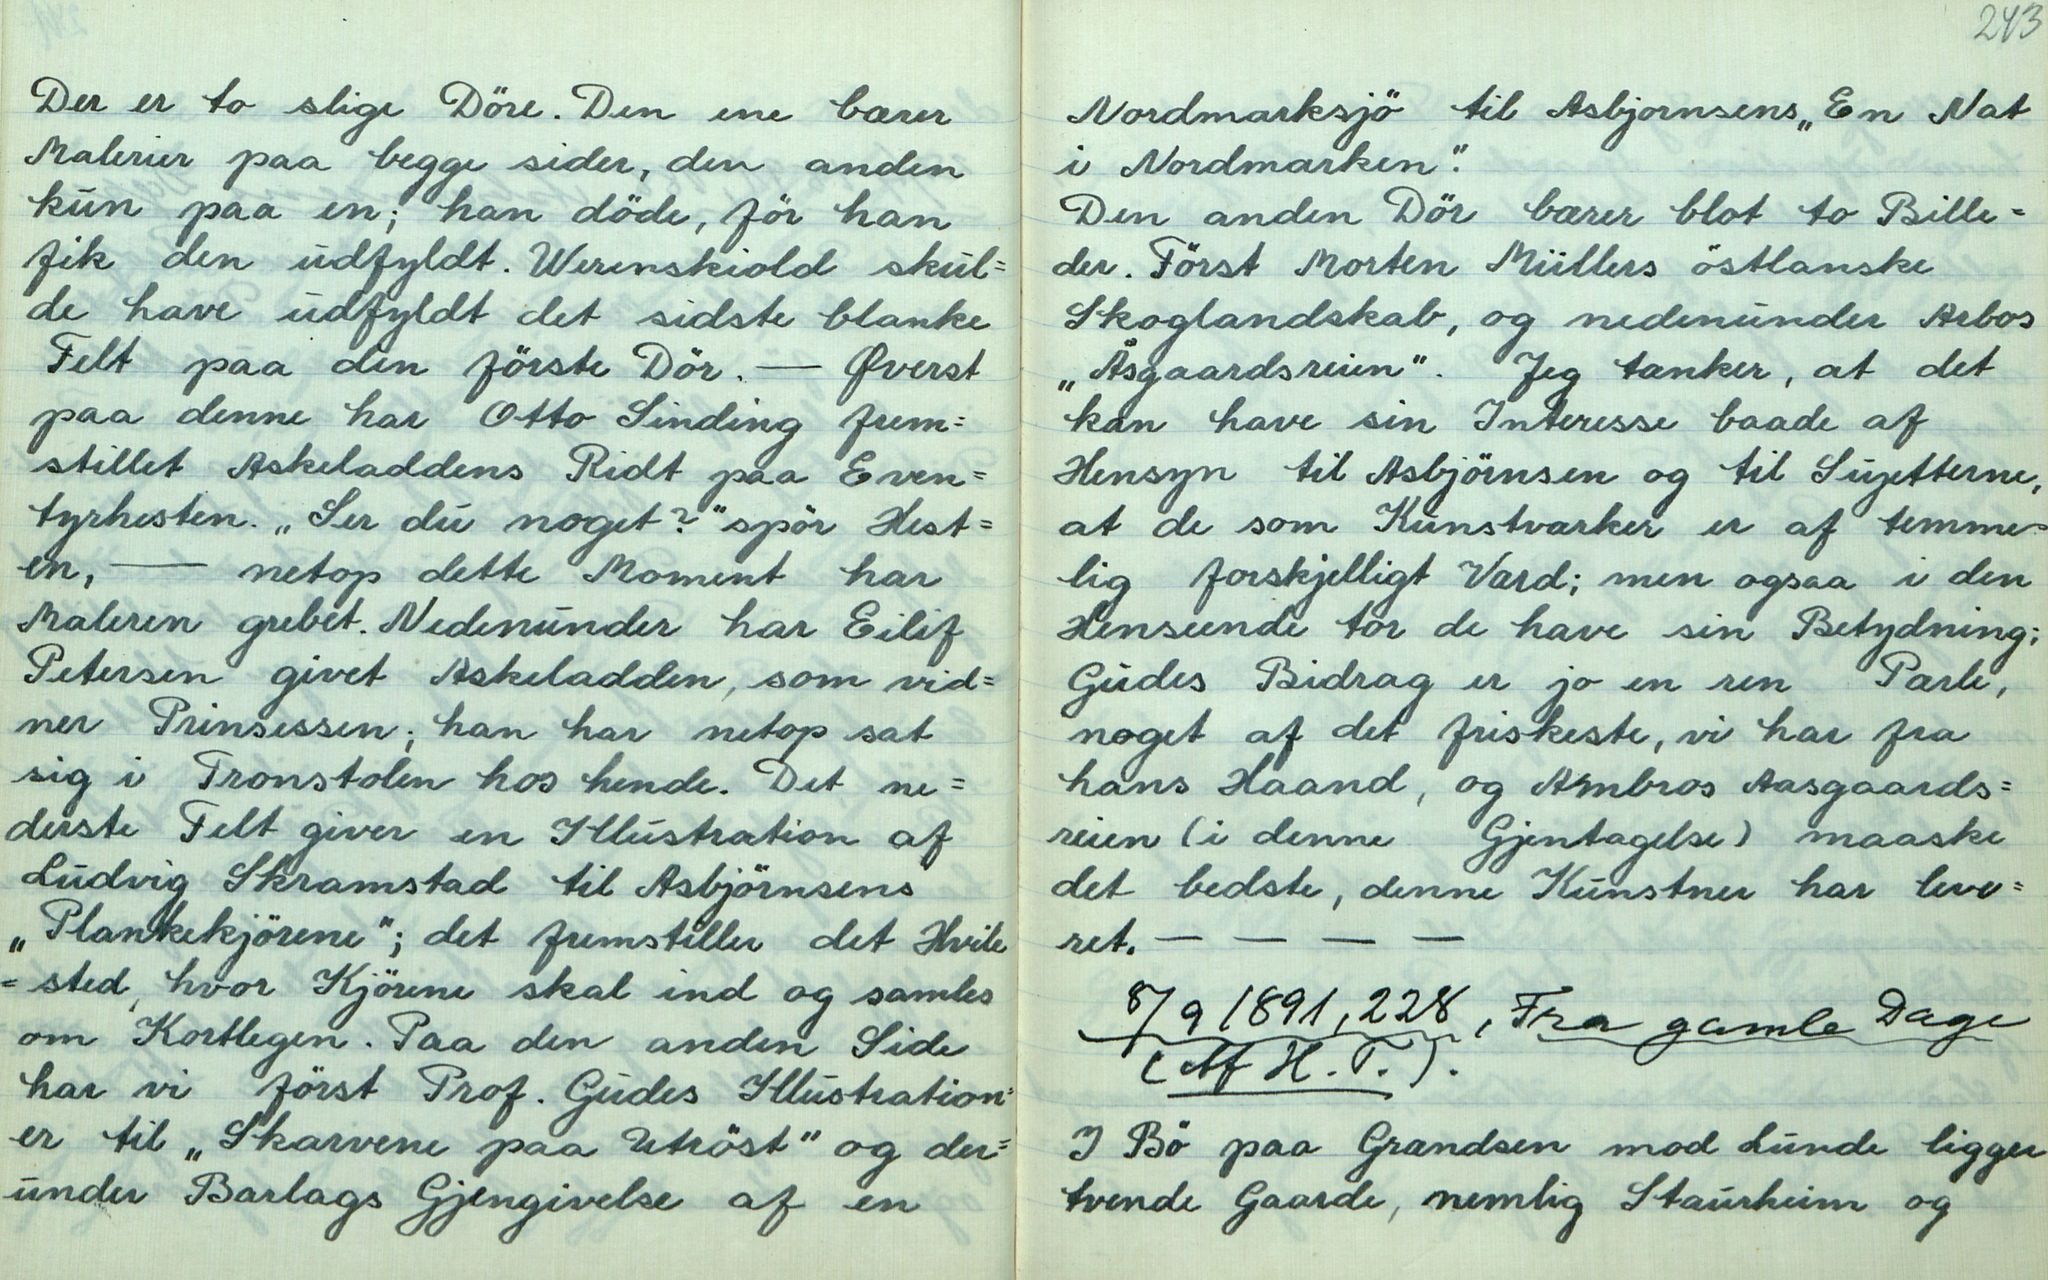 Der er to slige Döre. Den ene bærer
Malerier paa begge sider, den anden
kun paa en; han döde, för han
fik den udfyldt. Werenskiold skul=
de have udfyldt det sidste blanke
Felt paa den förste Dör. — Øverst
paa denne har Otto Sinding frem=
stillet Askeladdens Ridt paa Even=
tyrhesten. „Ser du noget?" spör Hest=
en, — netop dette Moment har
Maleren grebet. Nedenunder har Eilif
Petersen givet Askeladden, som vid=
ner Prinsessen; han har netop sat
sig i Tronstolen hos hende. Det ne=
derste Felt giver en Illustration af
Ludvig Skramstad til Asbjörnsens
„Plankekjörene"; det fremstiller det Hvile
=sted, hvor Kjörene skal ind og samles
om Kortlegen. Paa den anden Side
har vi först Prof. Gudes Illustration=
er til „Skarvene paa Utröst" og der=
under Barlags Gjengivelse af en
243
Nordmarksjö til Asbjornsens „En Nat
i Nordmarken".
Den anden Dör bærer blot to Bille=
der. Först Morten Müllers östlanske
Skoglandskab, og nedenunder Arbos
„Åsgaardsreien". Jeg tænker, at det
kan have sin Interesse baade af
Hensyn til Asbjörnsen og til Sujetterne,
at de som Kunstværker er af temme=
lig forskjelligt Værd; men ogsaa i den
Henseende tör de have sin Betydning;
Gudes Bidrag er jo en ren Pærle,
noget af det friskeste, vi har fra
hans Haand, og Ambros Aasgaards=
reien (i denne Gjentagelse) maaske
det bedste, denne Kunstner har leve=
ret. — — — —
8/9 1891, 228, Fra gamle Dage
(Af H. T.).
I Bö paa Grændsen mod Lunde ligger
tvende Gaarde, nemlig Staurheim og